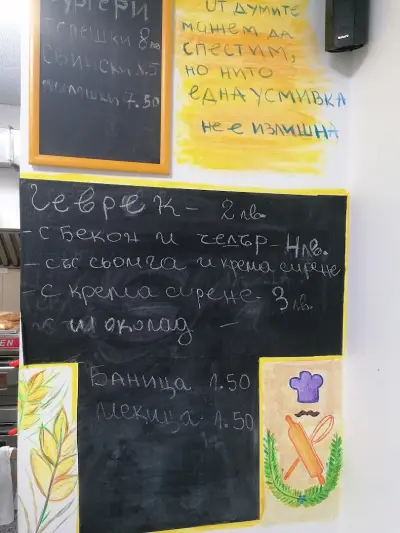 бургери
телешки 8 лв
свински 8.5
пилешки 7.50
от думите
можем да
спестим,
но нито
една усмивка
не е излишна
Геврек - 2 лв.
- с бекон и чедър - 4 лв.
- със сьомга и крема сирене
- с крема сирене - 3 лв.
- с шоколад -
Баница 1.50
Мекица 1.50